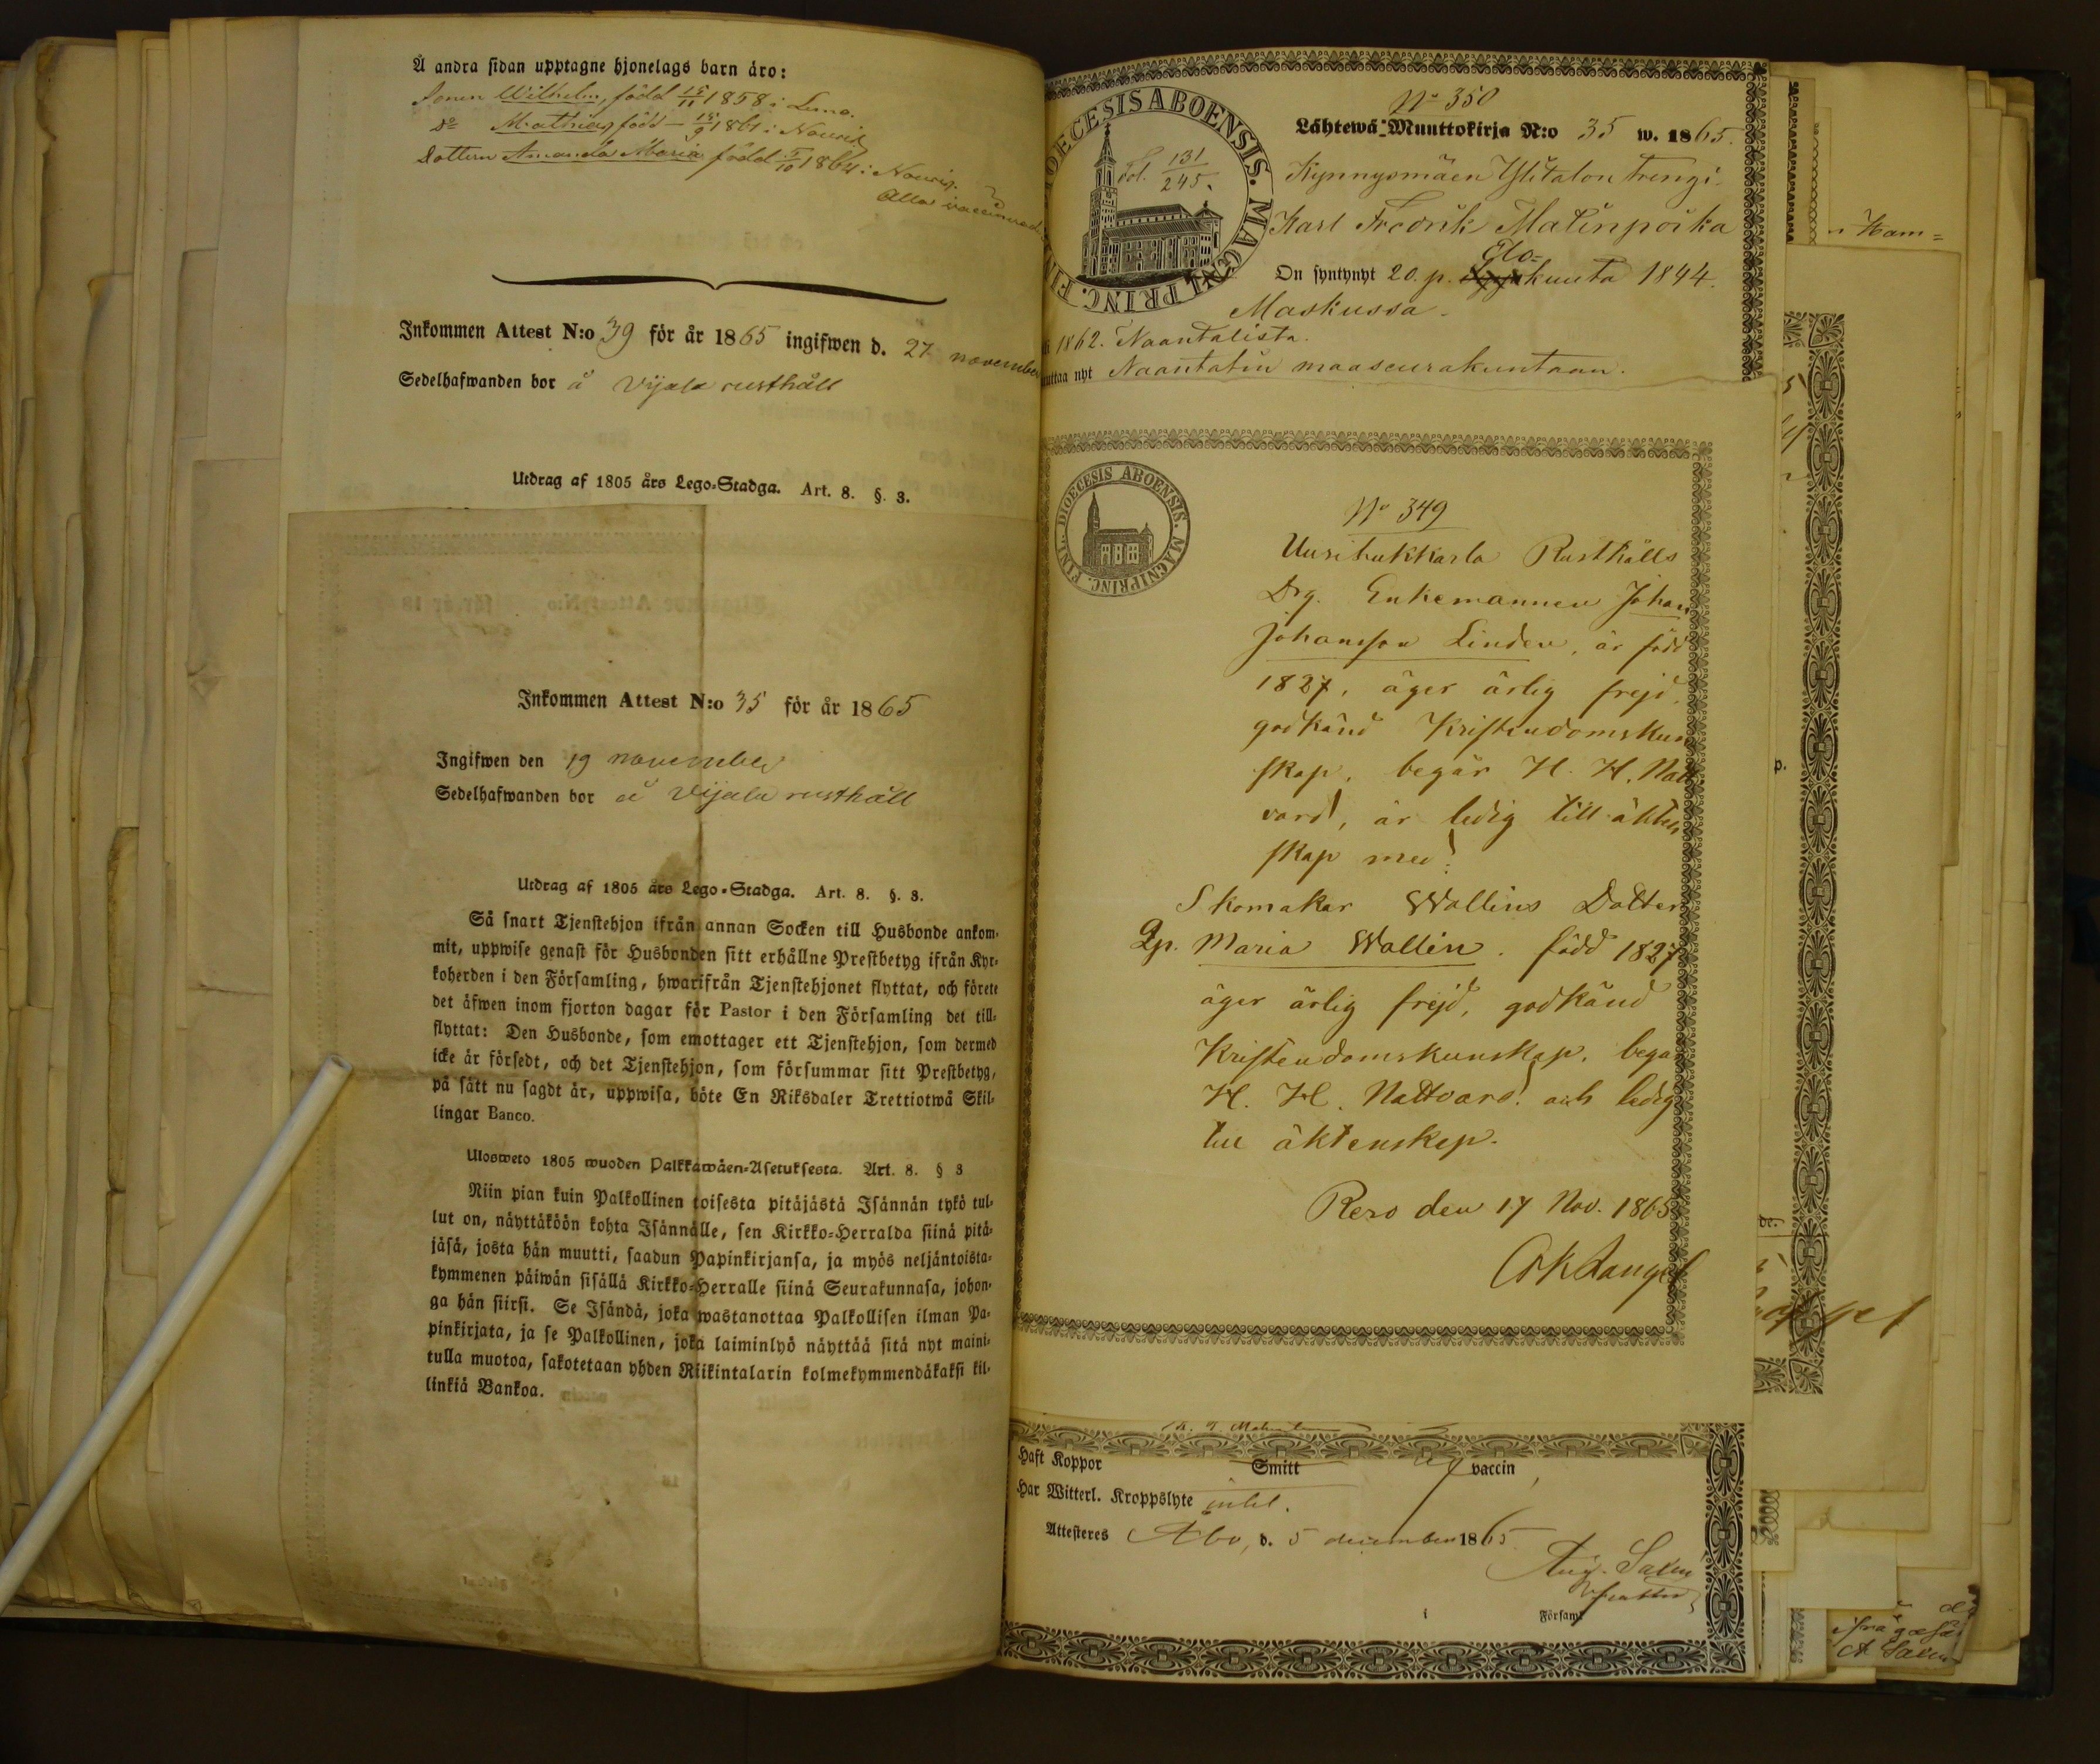 Å andra sidan upptagne hjonelags barn äro:
Sonen Wilhelm, född 15/11 1858 i Lemo.
Do Mathias, född 18/9 1861 i Nousis
Dottern Amanda Maria född 5/10 1864 i Nousis.
Alla vaccinerade
Inkommen Attest N:o 39 för år 1865 ingifwen d. 27 november
Sedelhafwanden bor å Vijala rusthåll
Utdrag af 1805 års Lego-Stadga. Art. 8. §. 3.
Inkommen Attest N:o 35 för år 1865
Ingifwen den 19 november
Sedelhafwanden bor å Vijala rusthåll
Utdrag af 1805 års Lego-Stadga. Art. 8. §. 3.
Så snart Tjenstehjon ifrån annan Socken till Husbonde ankom-
mit, uppwise genast för Husbonden sitt erhållne Prestbetyg ifrån Kyr-
koherden i den Församling, hwarifrån Tjenstehjonet flyttat, och förete
det äfwen inom fjorton dagar för Pastor i den Församling det till-
flyttat: Den Husbonde, som emottager ett Tjenstehjon, som dermed
icke är försedt, och det Tjenstehjon, som försummar sitt Prestbetyg,
på sätt nu sagdt är, uppwisa, böte En Riksdaler Trettiotwå Skil-
lingar Banco.
Ulosweto 1805 wuoden Palkkawäen-Asetuksesta. Art. 8. § 3
Niin pian kuin Palkollinen toisesta pitäjästä Isännän tykö tul-
lut on, näyttäköön kohta Isännälle, sen Kirkko-Herralda siinä pitä-
jäsä, josta hän muutti, saadun Papinkirjansa, ja myös neljäntoista-
kymmenen päiwän sisällä Kirkko-Herralle siinä Seurakunnasa, johon-
ga hän siirsi. Se Isändä, joka wastanottaa Palkollisen ilman Pa-
pinkirjata, ja se Palkollinen, joka laiminlyö näyttää sitä nyt maini-
tulla muotoa, sakotetaan yhden Riikintalarin kolmekymmendäkaksi kil-
linkiä Bankoa.
DIOECESIS ABOENSIS. MAGNI PRINC. FINL.
Fol. 131/245.
No 350
Lähtewä Muuttokirja N:o 35 w. 1865.
Kynnysmäen Ylitalon trengi
Karl Fredrik Matinpoika
On syntynyt 20. p. Elo=kuuta 1844.
Maskussa.
1862. Naantalista.
uttaa nyt Naantalin maaseurakuntaan.
DIOECESIS ABOENSIS. MAGNI PRINC. FINL.
No 349
Uusitukkarla Rusthålls
Drg. Enkemannen Johan
Johansson Linden, är född
1827, äger ärlig frejd,
godkänd Kristendomskun
skap, begår H. H. Natt
vard, är ledig till äkten
skap med:
Skomakar Wallins Dotter
Qp. Maria Wallin. född 1827
äger ärlig frejd, godkänd
Kristendomskunskap, begår
H. H. Nattvard och ledig
till äktenskap.
Reso den 17 Nov. 1865
Haft Koppor Smitt vaccin
Har Witterl. Kroppslyte intet.
Attesteres Åbo, d. 5 december 1865
Aug. Salin
i Församl
Kam=
p.
A Salin